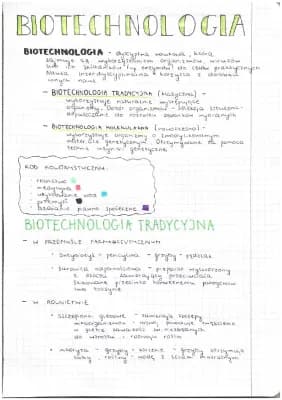 BIOTECHNOLOGIA
BIOTECHNOLOGIA - dyscyplina naukowa, która
zajmuje się wykorzystaniem organizmów, wirusów
lub ich składników (np. enzymów) do celów praktycznych
Nauka interdyscyplinarna - korzysta z dorobku
innych nauk
- BIOTECHNOLOGIA TRADYCYJNA (klasyczna) -
wykorzystuje naturalnie występujące
organizmy.
- BIOTECHNOLOGIA MOLEKULARNA (nowoczesna) -
wykorzystuje organizmy o zmodyfikowanym
materiale genetycznym. Otrzymywane za pomocą
technik inżynierii genetycznej
KOD KOLORYSTYCZNY:
- rolnictwo
- medycyna
- przemysł
- badania prawno społeczne
BIOTECHNOLOGIA TRADYCYJNA
- W PRZEMYŚLE FARMACEUTYCZNYM
• antybiotyki - penicylina - grzyby - pędzlak
• surowica odpornościowa - preparat wytworzony
z osocza zawierający przeciwciała
skierowane przeciwko konkretnemu patogenowi
lub toksynie
- W ROLNICTWIE
• szczepionki glebowe - zawierają szczepy
mikroorganizmów
w glebie
do wzrostu i rozwoju roślin
• mikoryza - grzyby - korzenie - grzyby otrzymują
cukry, rośliny wodę z solami mineralnymi